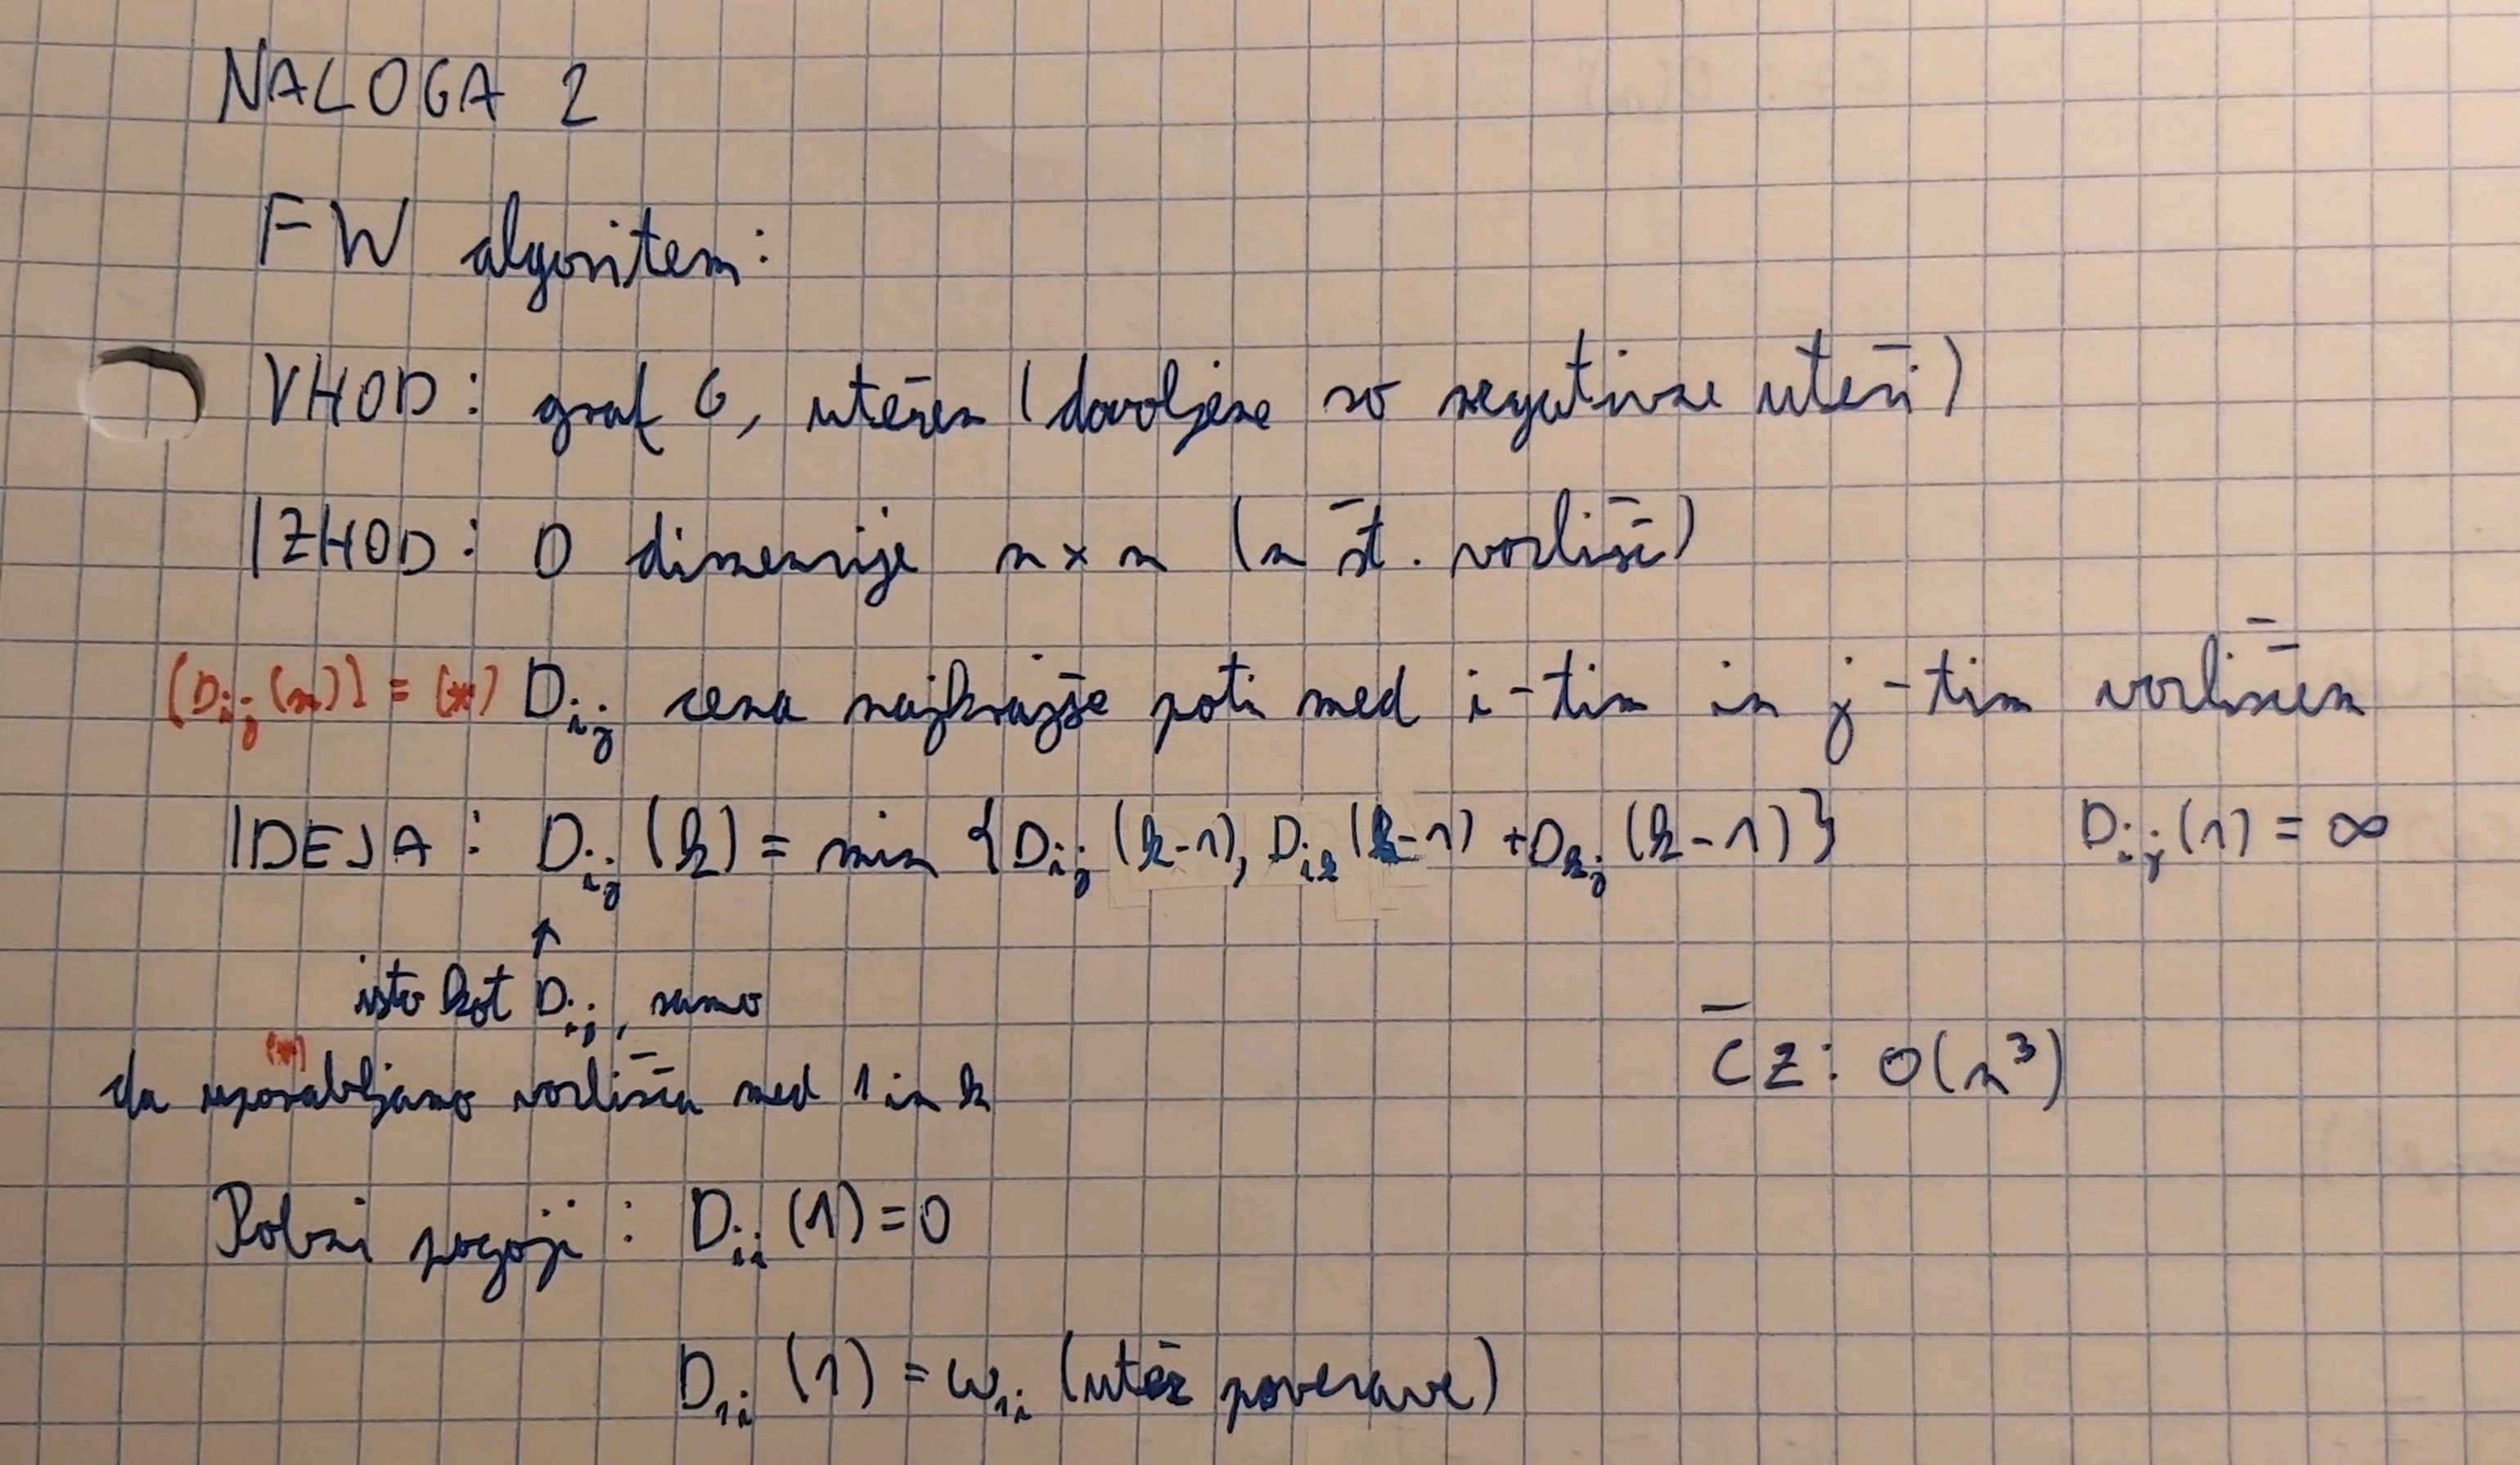 NALOGA 2
FW algoritem:
VHOD: graf G, utežen (dovoljene so negativne uteži)
IZHOD: D dimenzije n x n (n št. vozlišč)
(D_ij(n)) = (*) D_ij cena najkrajše poti med i-tim in j-tim vozliščem
IDEJA: D_ij(k) = min {D_ij(k-1), D_ik(k-1) + D_kj(k-1)} D_ij(1) = ∞
↑
isto kot D_ij, samo
(*)
da uporabljamo vozlišča med 1 in k
ČZ: O(n³)
Robni pogoji: D_ii(1) = 0
D_1i(1) = w_1i (utež povezave)